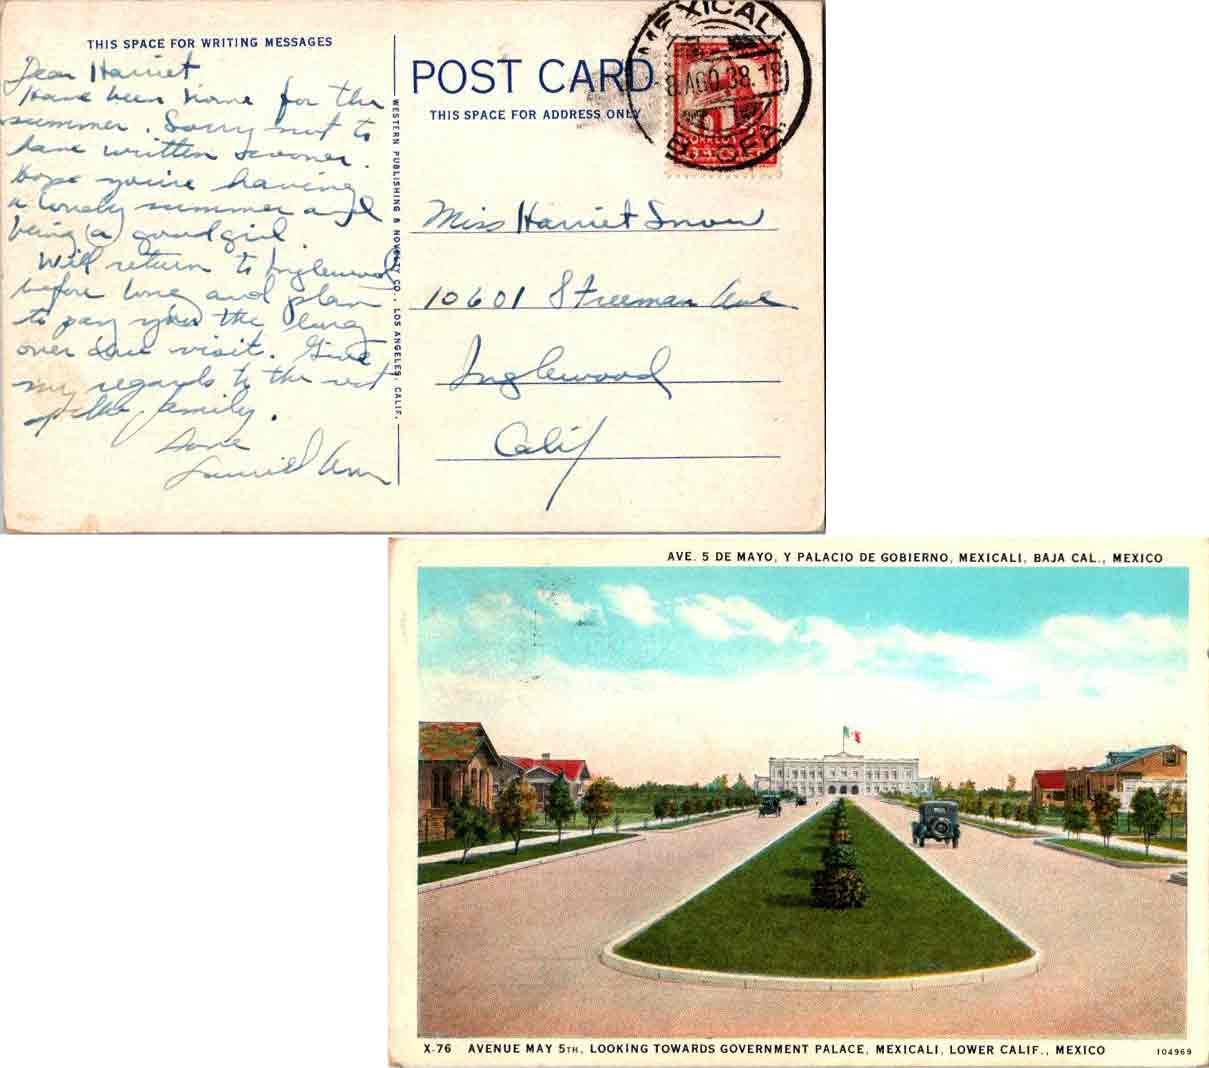 THIS SPACE FOR WRITING MESSAGES
Dear Harriet
Have been home for the
summer. Sorry not to
have written sooner.
Hope you're having
a lovely summer and
being (a) good girl
Will return to Inglewood
before long and plan
to pay you the long
over due visit. Give
my regards to the rest
of the family.
Love
Ann
WESTERN PUBLISHING & NOVELTY CO., LOS ANGELES, CALIF.
POST CARD
THIS SPACE FOR ADDRESS ONLY
MEXICALI
8 AGO 38. 18
B. CFA.
CORREOS
Miss Harriet Snow
10601 S Freeman Ave
Inglewood
Calif
AVE. 5 DE MAYO, Y PALACIO DE GOBIERNO, MEXICALI, BAJA CAL., MEXICO
X-76 AVENUE MAY 5TH, LOOKING TOWARDS GOVERNMENT PALACE, MEXICALI, LOWER CALIF., MEXICO
104969